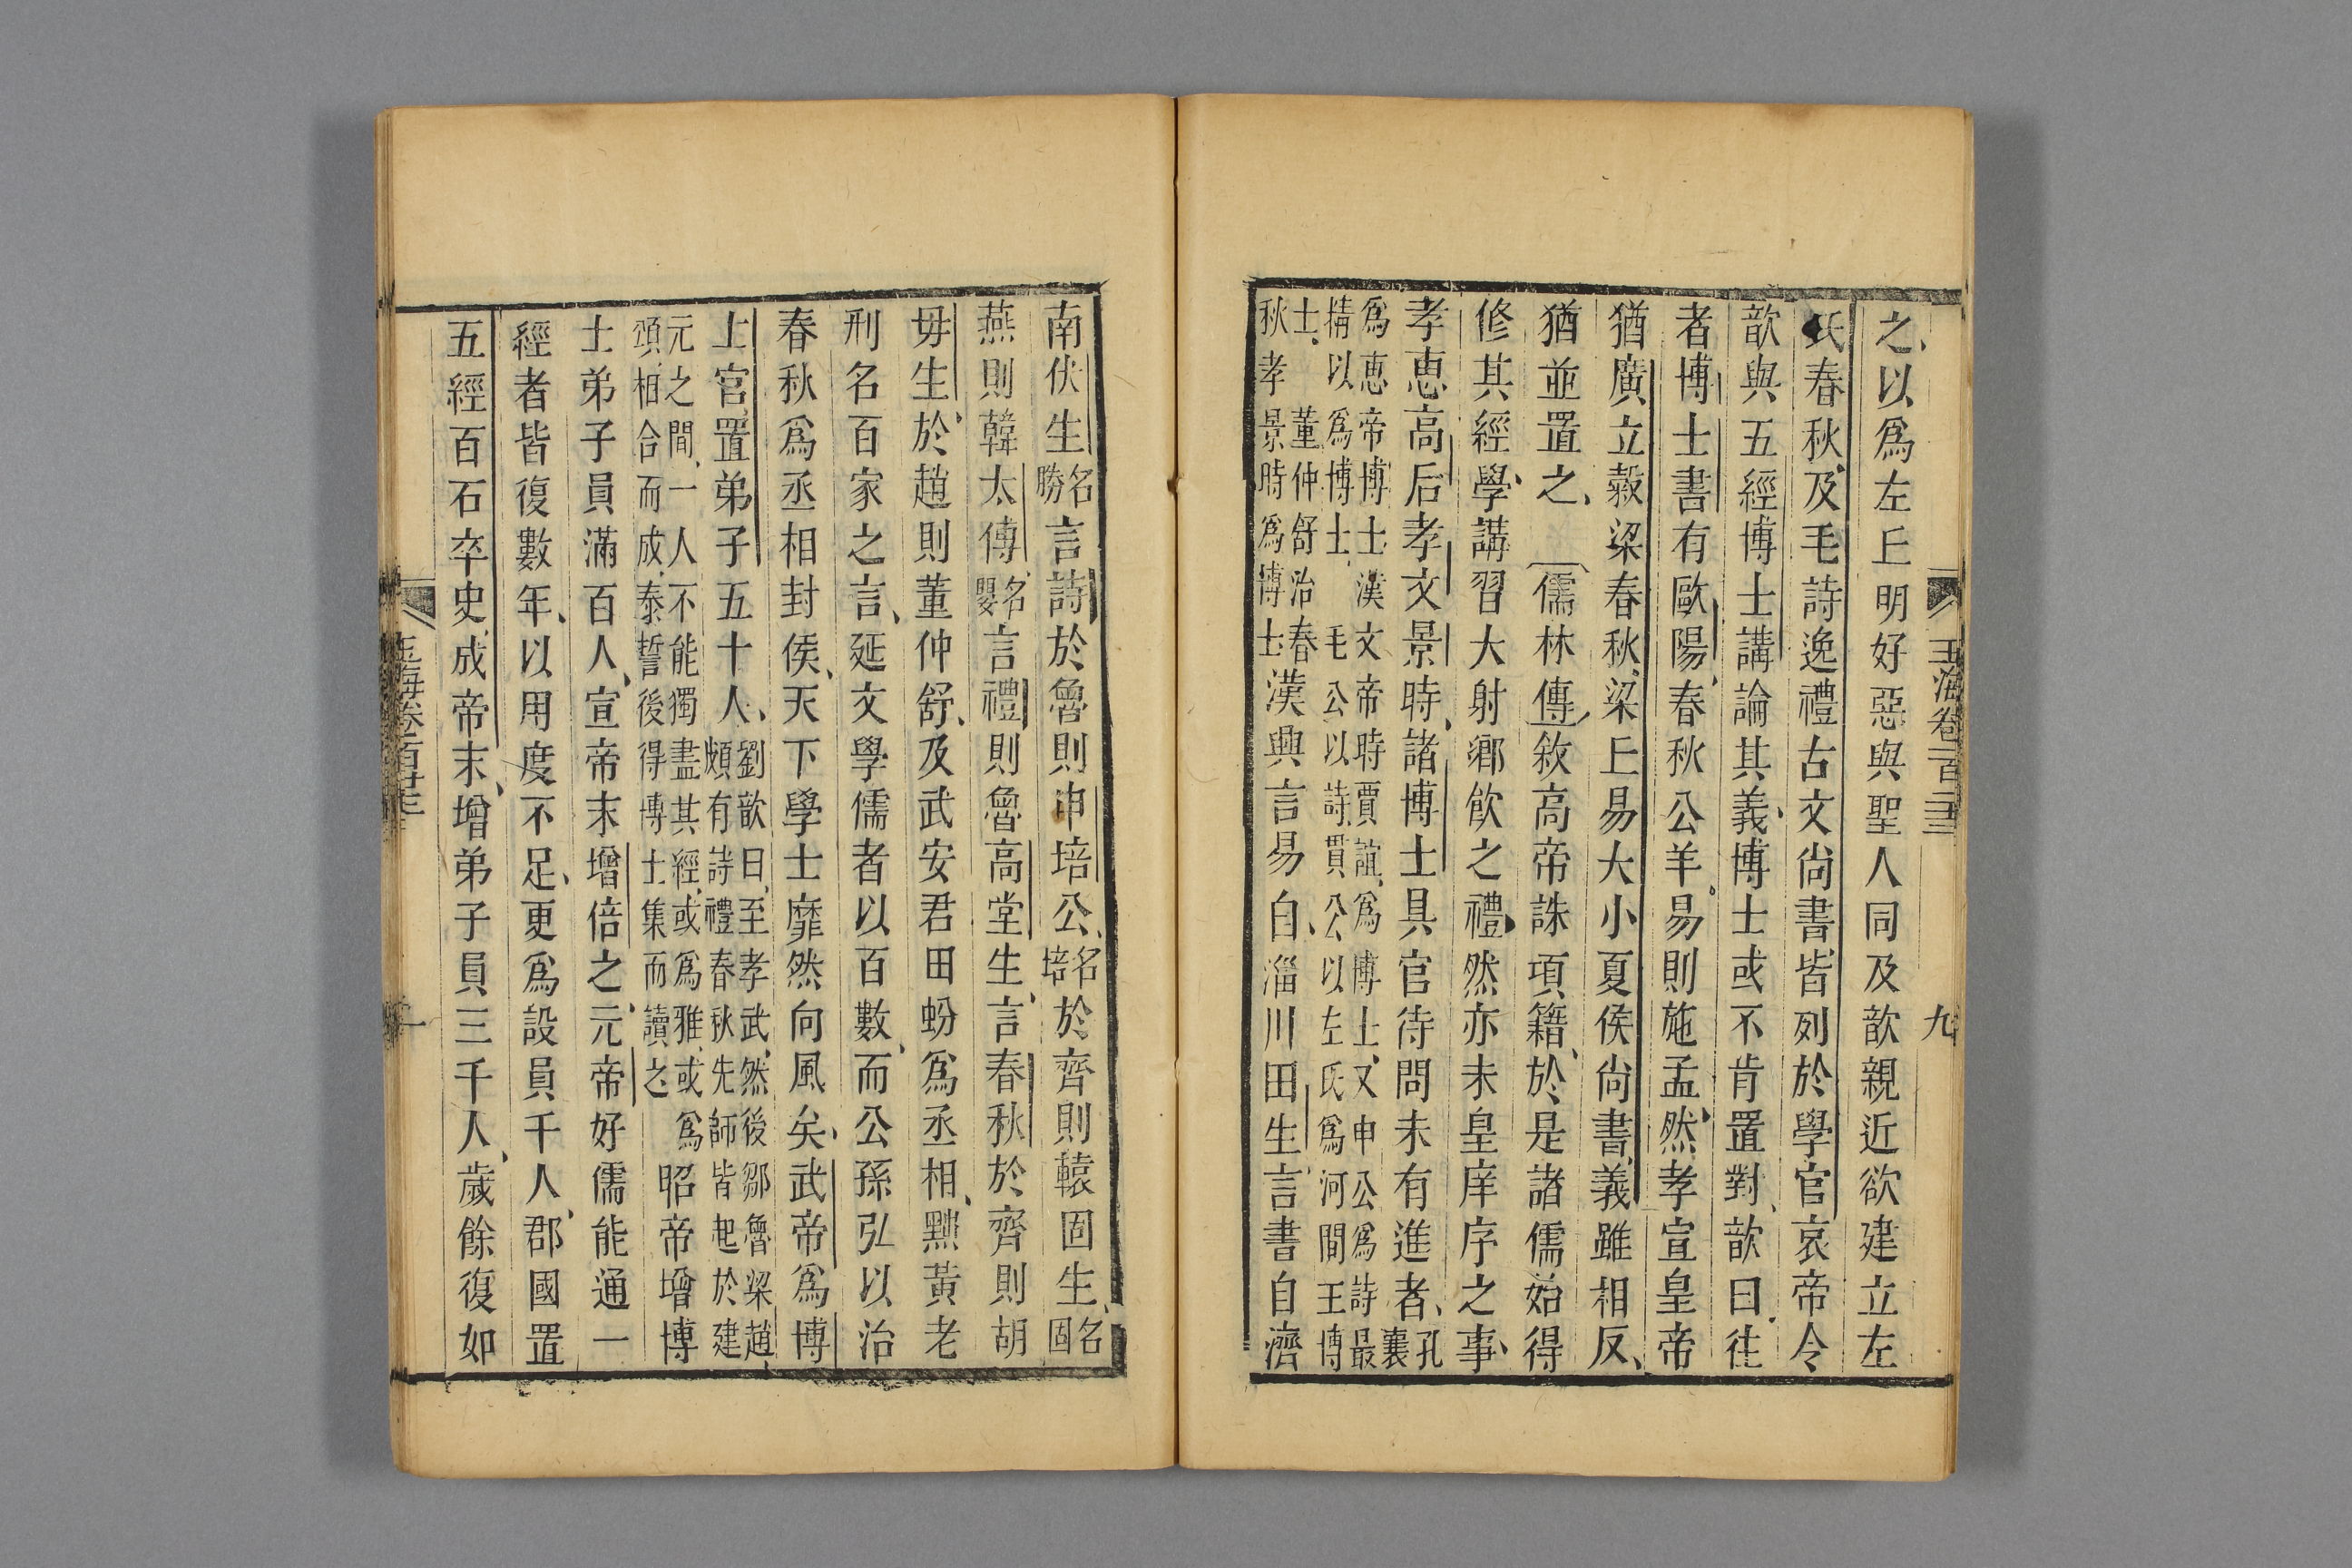 玉海卷一百二十三
九
之以爲左丘明好惡與聖人同及歆親近欲建立左
氏春秋及毛詩逸禮古文尚書皆列於學官哀帝令
歆與五經博士講論其義博士或不肯置對歆曰往
者博士書有歐陽春秋公羊易則施孟然孝宣皇帝
猶廣立穀梁春秋梁丘易大小夏侯尚書義雖相反
猶並置之 儒林傳敘高帝誅項籍於是諸儒始得
修其經學講習大射鄉飲之禮然亦未皇庠序之事
孝惠高后孝文景時諸博士具官待問未有進者孔
襄
爲惠帝博士漢文帝時賈誼爲博士又申公爲詩最
精以爲博士毛公以詩貫公以左氏爲河間王博
士 董仲舒治春
秋孝景時爲博士漢興言易自淄川田生言書自濟
南伏生名
勝言詩於魯則申培公名
培於齊則轅固生名
固
燕則韓太傅名
嬰言禮則魯高堂生言春秋於齊則胡
毋生於趙則董仲舒及武安君田蚡爲丞相黜黃老
刑名百家之言延文學儒者以百數而公孫弘以治
春秋爲丞相封侯天下學士靡然向風矣武帝爲博
士官置弟子五十人劉歆曰至孝武然後鄒魯梁趙
頗有詩禮春秋先師皆起於建
元之間一人不能獨盡其經或爲雅或爲
頌相合而成泰誓後得博士集而讀之昭帝增博
士弟子員滿百人宣帝末增倍之元帝好儒能通一
經者皆復數年以用度不足更爲設員千人郡國置
五經百石卒史成帝末增弟子員三千人歲餘復如
玉海卷一百二十三